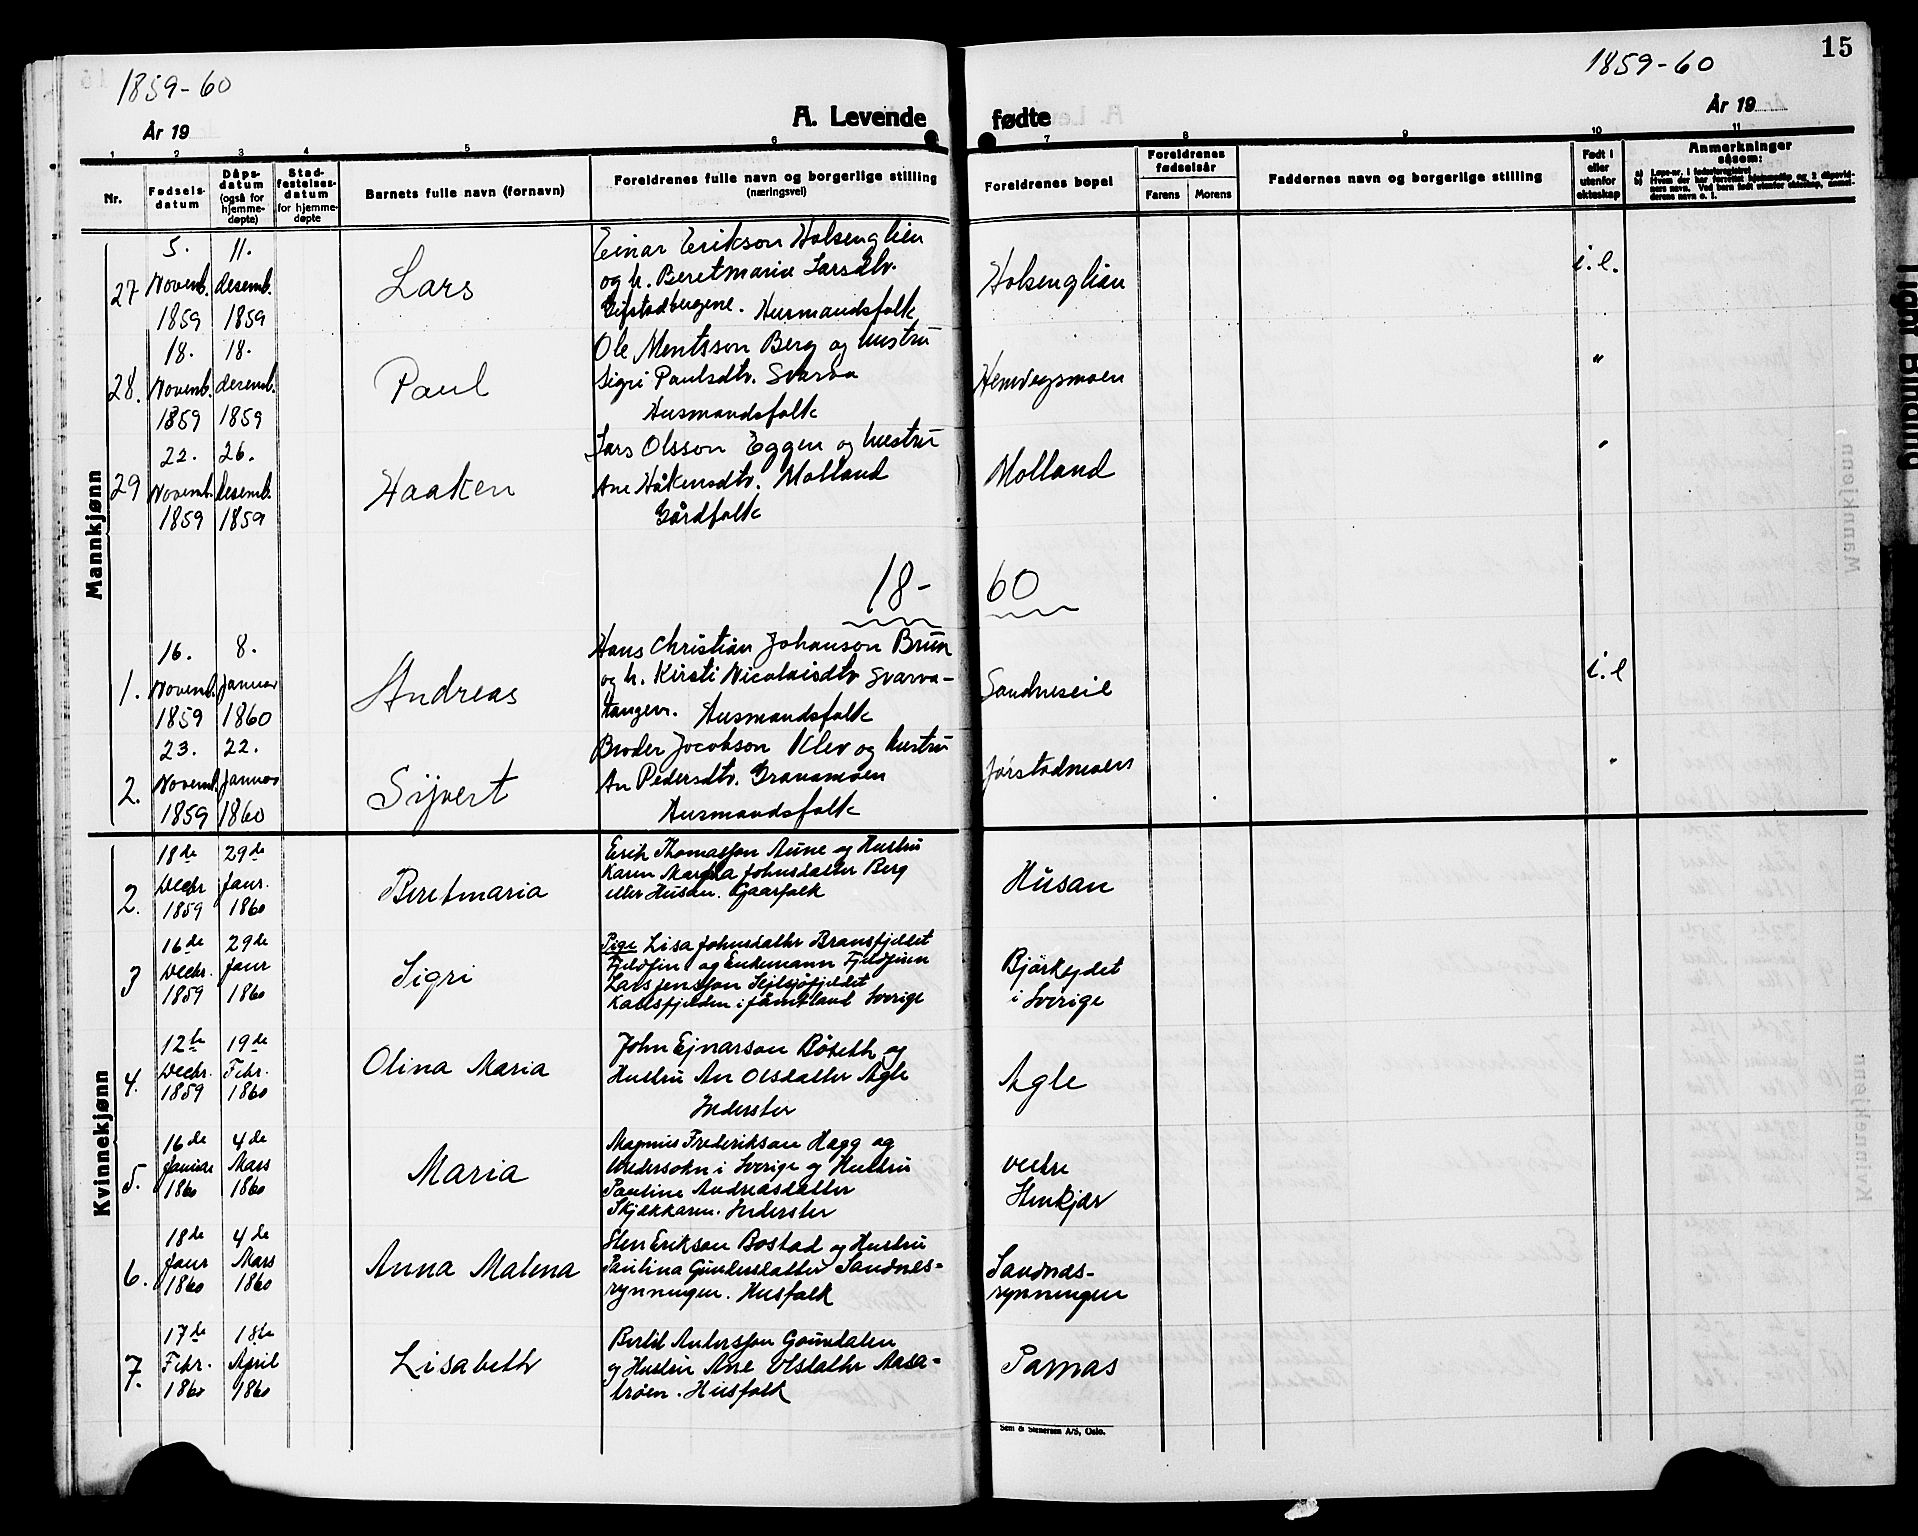 1859-60
1859-60
15
År 19
År 19
A. Levende fødte
1 2 3 4 5 6 7 8 9 10 11
Nr.
Fødsels-
datum
Dåps-
datum
(også for
hjemme-
døpte)
Stad-
festelses-
datum
for hjemme-
døpte
Barnets fulle navn (fornavn)
Foreldrenes fulle navn og borgerlige stilling
(næringsvei)
Foreldrenes bopel
Foreldrenes
fødselsår
Farens Morens
Faddernes navn og borgerlige stilling
Født i
eller
utenfor
ekteskap
Anmerkninger
såsom:
Mannkjønn
27
5.
Novemb.
1859
11.
desemb.
1859
Lars
Einar Erikson Holsenglien
og h. Beretmarie Larsdtr.
Gifstadbergene. Husmandsfolk
Holsenglien
i.e.
28.
18.
Novemb.
1859
18.
desemb.
1859
Paul
Ole Mentsson Berg og hustru
Sigri Paulsdtr. Svarva
Husmandsfolk
Hemvegsmoen
"
29
22.
Novemb.
1859
26.
desemb.
1859
Haaken
Lars Olsson Eggen og hustru
Ane Håkensdtr. Molland
Gårdfolk
Molland
"
18-60
1.
16.
Novemb.
1859
8.
Januar
1860
Andreas
Hans Christian Johanson Brun
og h. Kirsti Nicolaisdtr Svarva-
tangen. Husmandsfolk
Sandneseie
i.e
2.
23.
Novemb.
1859
22.
Januar
1860
Sijvert
Broder Jocobson Klev og hustru
An Pedersdtr. Granamoen
Husmandsfolk
Jørstadmoen
"
Kvinnekjønn
2.
18de
Decbr
1859
29de
Janr.
1860
Beretmaria
Erich Thomassen Aune og Hustru
Karen Martha Johnsdatter Berg
eller Husan. Gaarfolk
Husan
3
16de
Decbr.
1859
29de
Janr
1860
Sigri
Pige Lisa Johnsdatter Bransfjeldet
Fjeldfin og Enkemann Fjeldfinen
Lars Jensson Sejlsjöfjeldet
Kallsfjelden i Jämtland Sverige
Bjørkejdet
i Sverige
4.
12te
Decbr.
1859
19de
Febr.
1860
Olina Maria
John Ejnarson Bøseth og
Hustru An Olsdatter Agle
Inderster
Agle
5.
16de
Januar
1860
4de
Mars
1860
Maria
Magnus Frederikson Hagg og
Undersokn i Sverige og Hustru
Pauline Andreasdatter
Skjækkaren. Inderster
vestre
Stenkjær
6.
18de
Janr
1860
4de
Mars
1860
Anna Malena
Sten Erikson Bostad og Hustru
Paulina Gundersdatter Sandnes-
rynningen. Husfolk
Sandnes-
rynningen
7.
17de
Febr.
1860
18de
April
1860
Lisabeth
Bertil Andersson Gaundalen
og Hustru Ane Olsdatter Aasa-
trøen. Husfolk
Parnas
Sem & Stenersen A/S, Oslo.